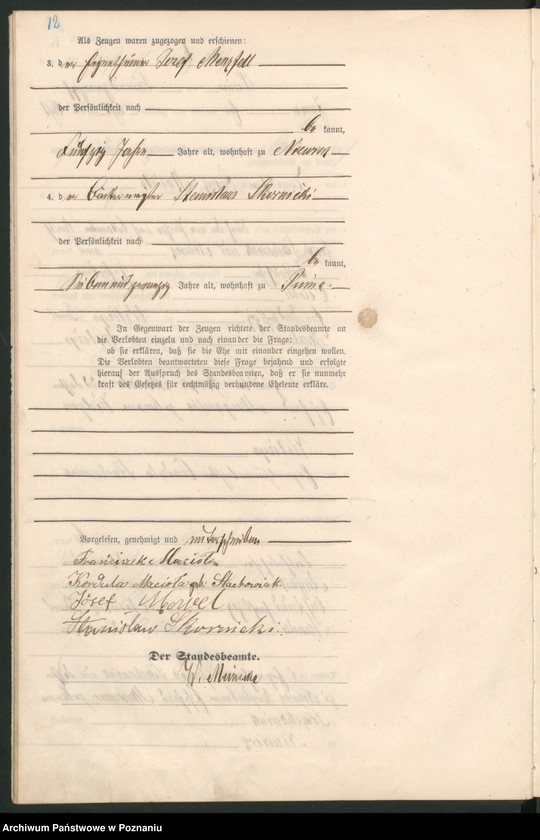 12
Als Zeugen waren zugezogen und erschienen:
3. der Eigenthümer Josef
der Persönlichkeit nach
bekannt,
fünfzig Jahre Jahre alt, wohnhaft zu
4. der Stanislaus Skornicki
der Persönlichkeit nach
bekannt,
siebenundzwanzig Jahre alt, wohnhaft zu
In Gegenwart der Zeugen richtete der Standesbeamte an
die Verlobten einzeln und nach einander die Frage:
ob sie erklären, daß sie die Ehe mit einander eingehen wollen.
Die Verlobten beantworteten diese Frage bejahend und erfolgte
hierauf der Ausspruch des Standesbeamten, daß er sie nunmehr
kraft des Gesetzes für rechtmäßig verbundene Eheleute erkläre.
Vorgelesen, genehmigt und unterschrieben
Franciszek Maciola
Kordula Maciola geb. Stachowiak
Józef
Stanisław Skornicki
Der Standesbeamte.
Archiwum Państwowe w Poznaniu